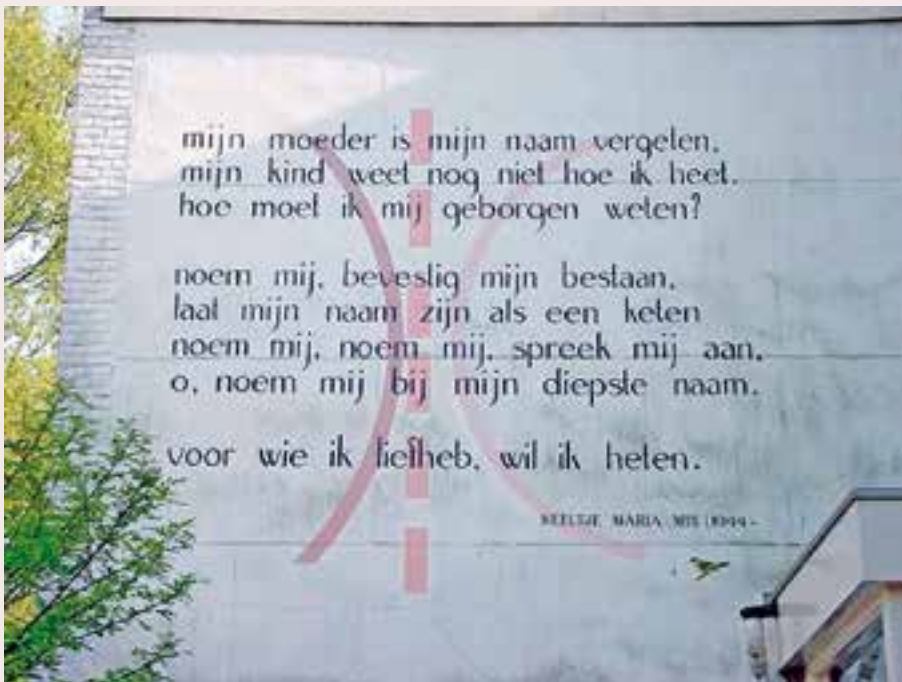 mijn moeder is mijn naam vergeten,
mijn kind weet nog niet hoe ik heet.
hoe moet ik mij geborgen weten?
noem mij, bevestig mijn bestaan,
laat mijn naam zijn als een keten
noem mij, noem mij, spreek mij aan,
o, noem mij bij mijn diepste naam.
voor wie ik liefheb, wil ik heten.
NEELTJE MARIA MIN (1944 -